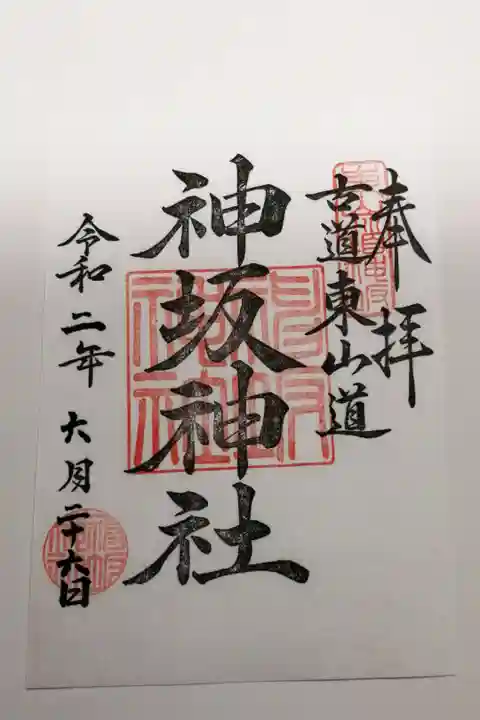 奉拝
古道東山道
神坂神社
令和二年六月二十六日